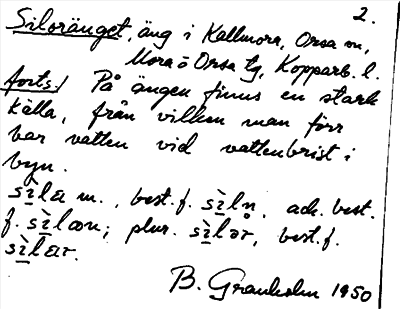 2.
Siloränget, äng i Kallmora, Orsa sn,
Mora o Orsa tg, Kopparb. l.
forts./ På ängen finns en stark
källa, från vilken man förr
bar vatten vid vattenbrist i
byn.
sìla m., best. f. sìln, ack. best.
f. sìlæn; plur. sìlǝr, best. f.
sìlær.
B. Granholm 1950